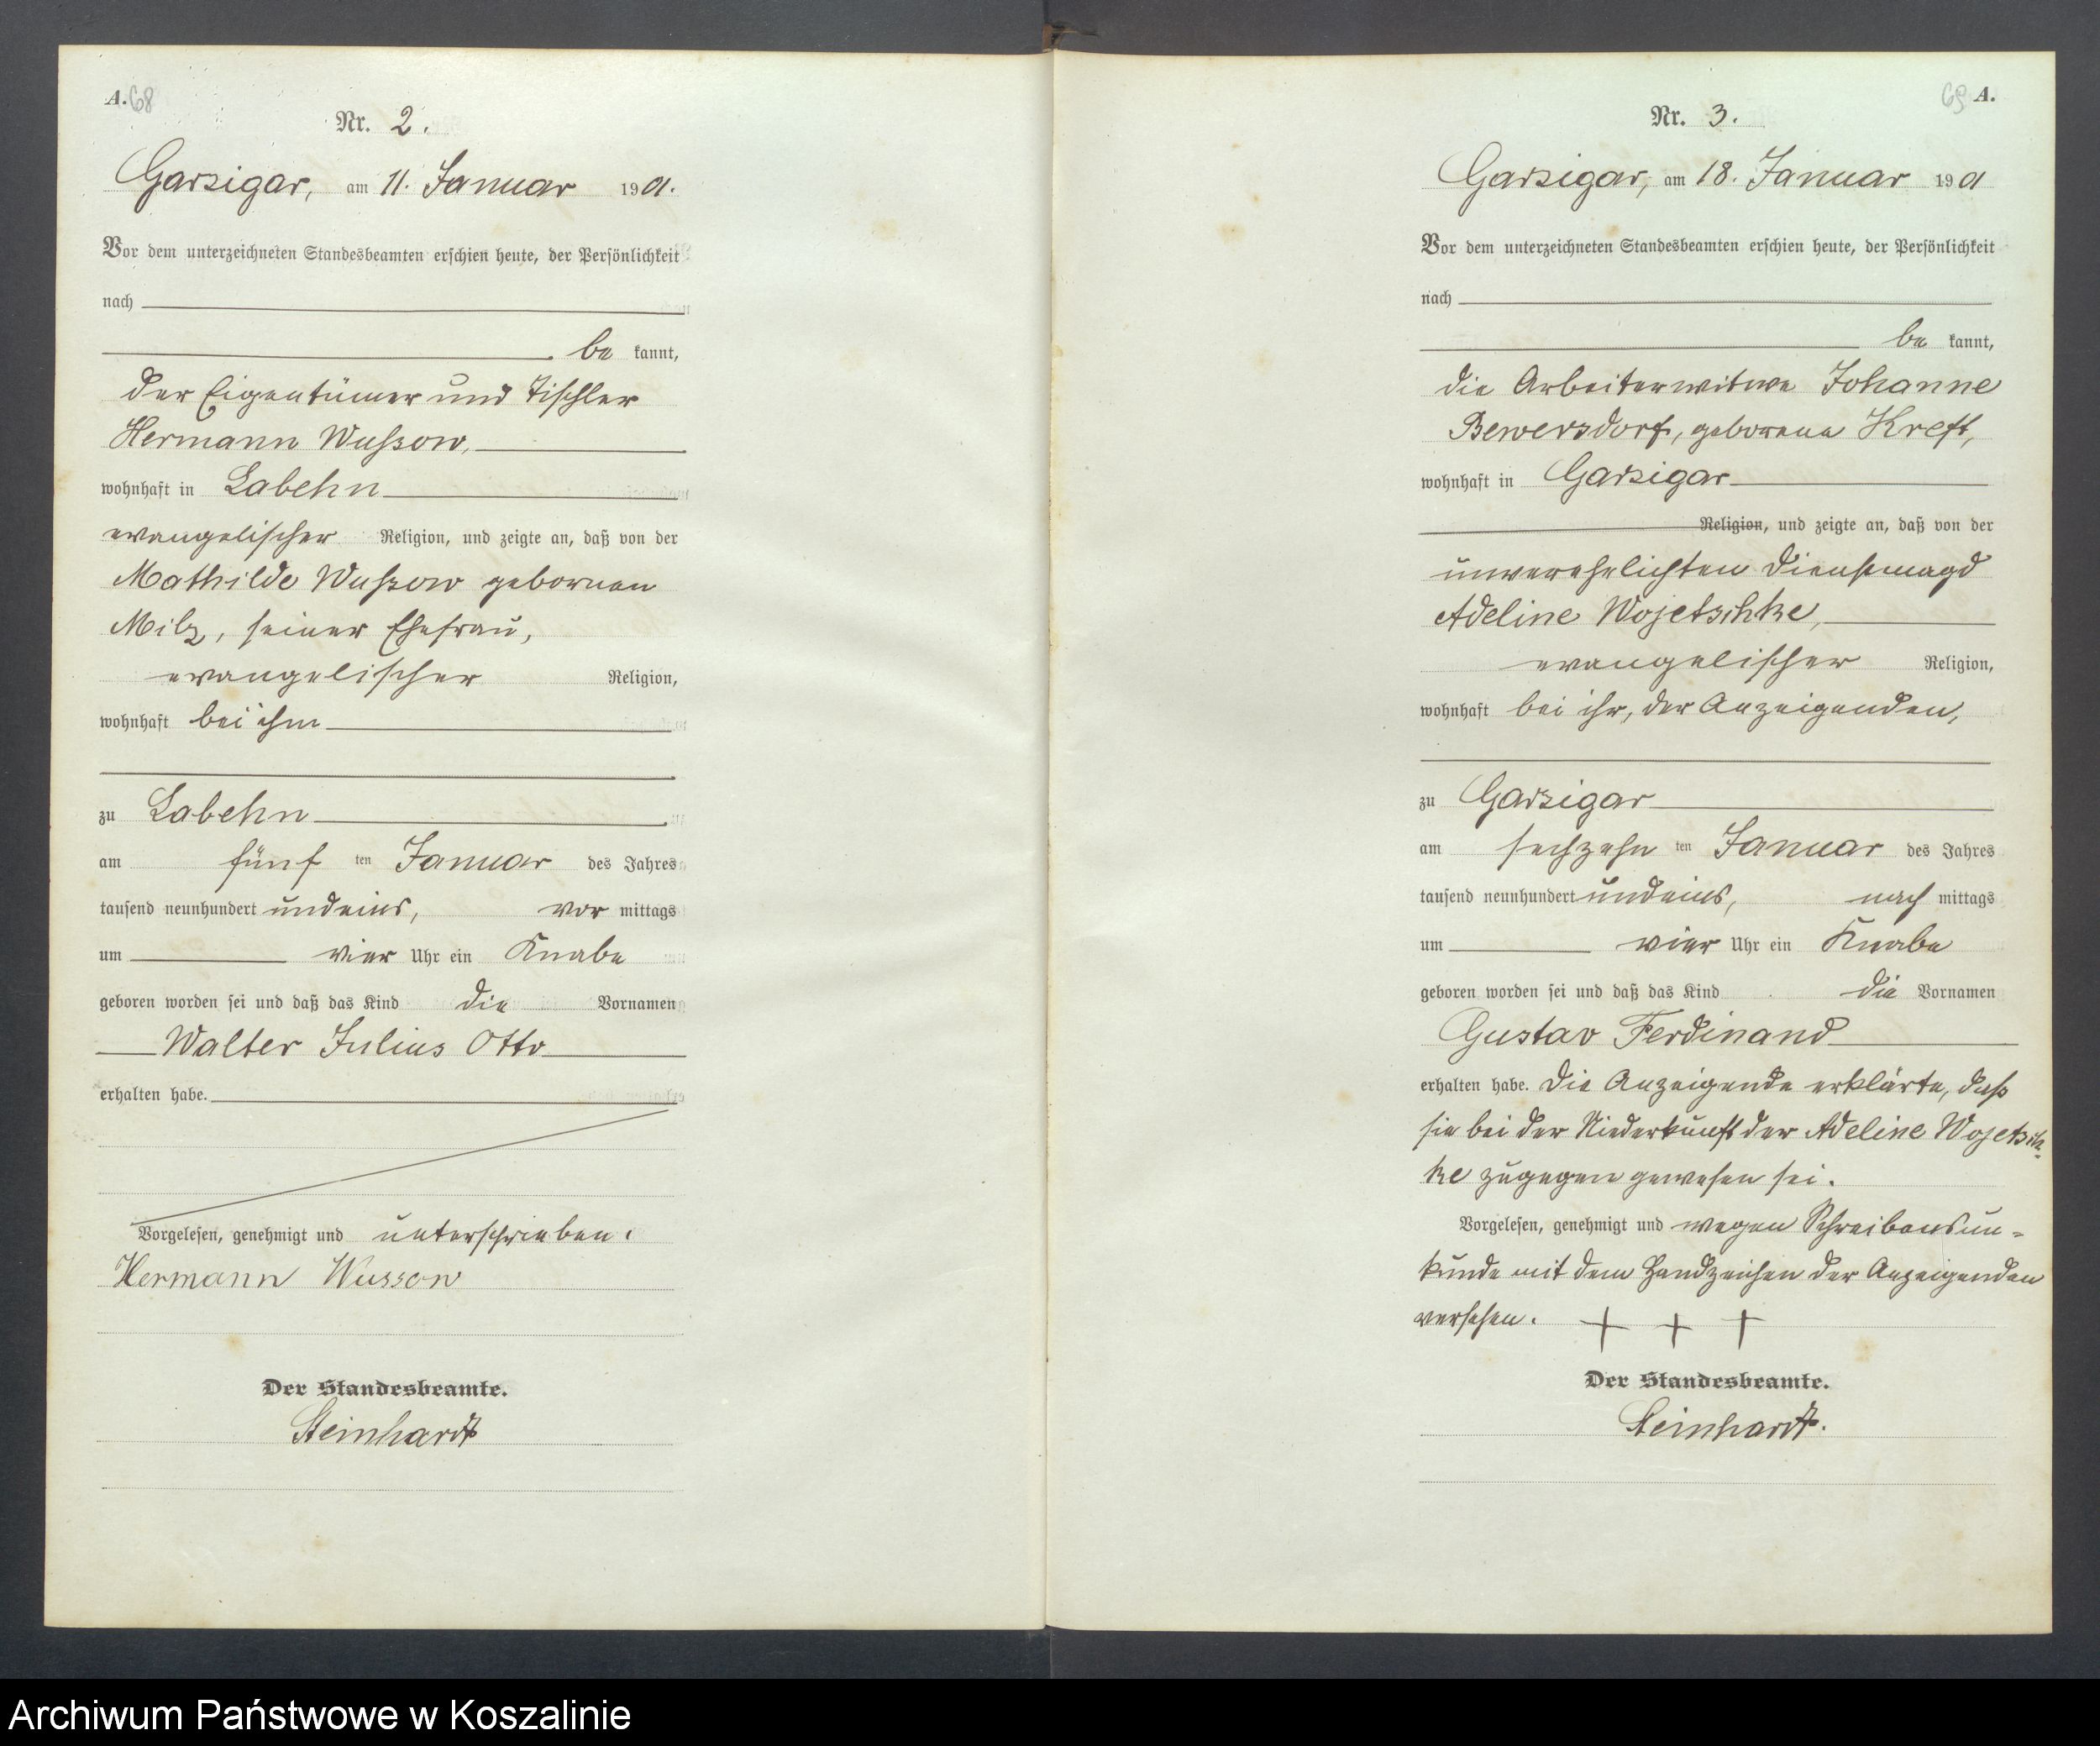 A. 68
Nr. 2.
Garzigar, am 11. Januar 1901.
Vor dem unterzeichneten Standesbeamten erschien heute, der Persönlichkeit
nach
be kannt,
der Eigentümer und Tischler
Hermann Wußow,
wohnhaft in Labehn
evangelischer Religion, und zeigte an, daß von der
Mathilde Wußow gebornen
Milz, seiner Ehefrau,
evangelischer Religion,
wohnhaft bei ihm
zu Labehn
am fünf ten Januar des Jahres
tausend neunhundert undeins, vor mittags
um vier Uhr ein Knabe
geboren worden sei und daß das Kind die Vornamen
Walter Julius Otto
erhalten habe.
Vorgelesen, genehmigt und unterschrieben.
Hermann Wussow
Der Standesbeamte.
Steinhardt
69 A.
Nr. 3.
Garzigar, am 18. Januar 1901
Vor dem unterzeichneten Standesbeamten erschien heute, der Persönlichkeit
nach
be kannt,
die Arbeiterwitwe Johanne
Bewersdorf, geborene Kreft,
wohnhaft in Garzigar
Religion, und zeigte an, daß von der
unverehelichten Dienstmagd
Adeline Wojetschke,
evangelischer Religion,
wohnhaft bei ihr, der Anzeigenden,
zu Garzigar
am sechzehn ten Januar des Jahres
tausend neunhundert undeins, nach mittags
um vier Uhr ein Knabe
geboren worden sei und daß das Kind die Vornamen
Gustav Ferdinand
erhalten habe. Die Anzeigende erklärte, daß
sie bei der Niederkunft der Adeline Wojetsch-
ke zugegen gewesen sei.
Vorgelesen, genehmigt und wegen Schreibensun-
kunde mit dem Handzeichen der Anzeigenden
versehen. + + +
Der Standesbeamte.
Steinhardt.
Archiwum Państwowe w Koszalinie